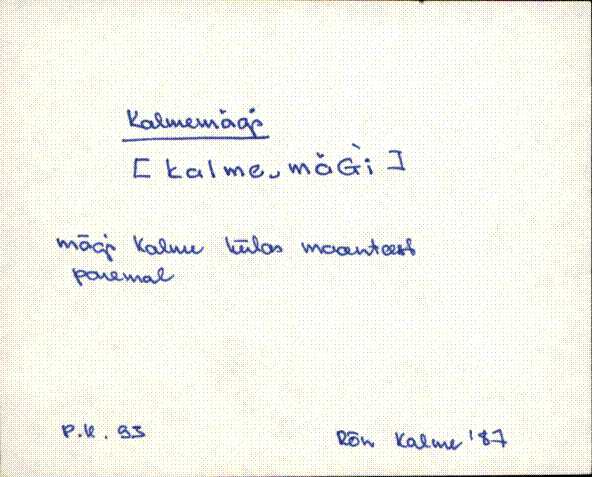 Kalmemägi
[kalme‿mäG̀i]
mägi Kalme külas maanteest
paremal
P.K. 93
Rõn Kalme '87